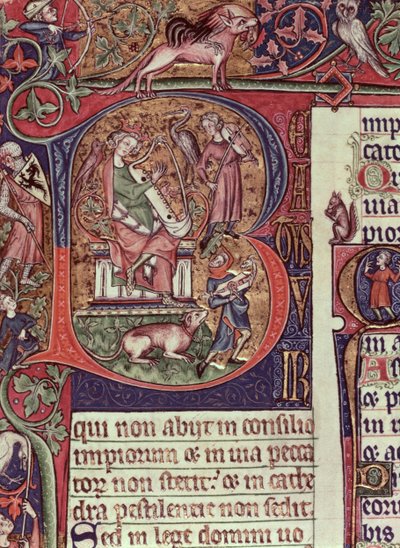 B
EATUS VIR
qui non abijt in consilio
impiorum & in uia pecca
tor non stetit: & in cathe
dra pestilencie non sedit
Sed in lege domini uo
imp
cato
uia
pior
in a
& p
in
eoru
bis